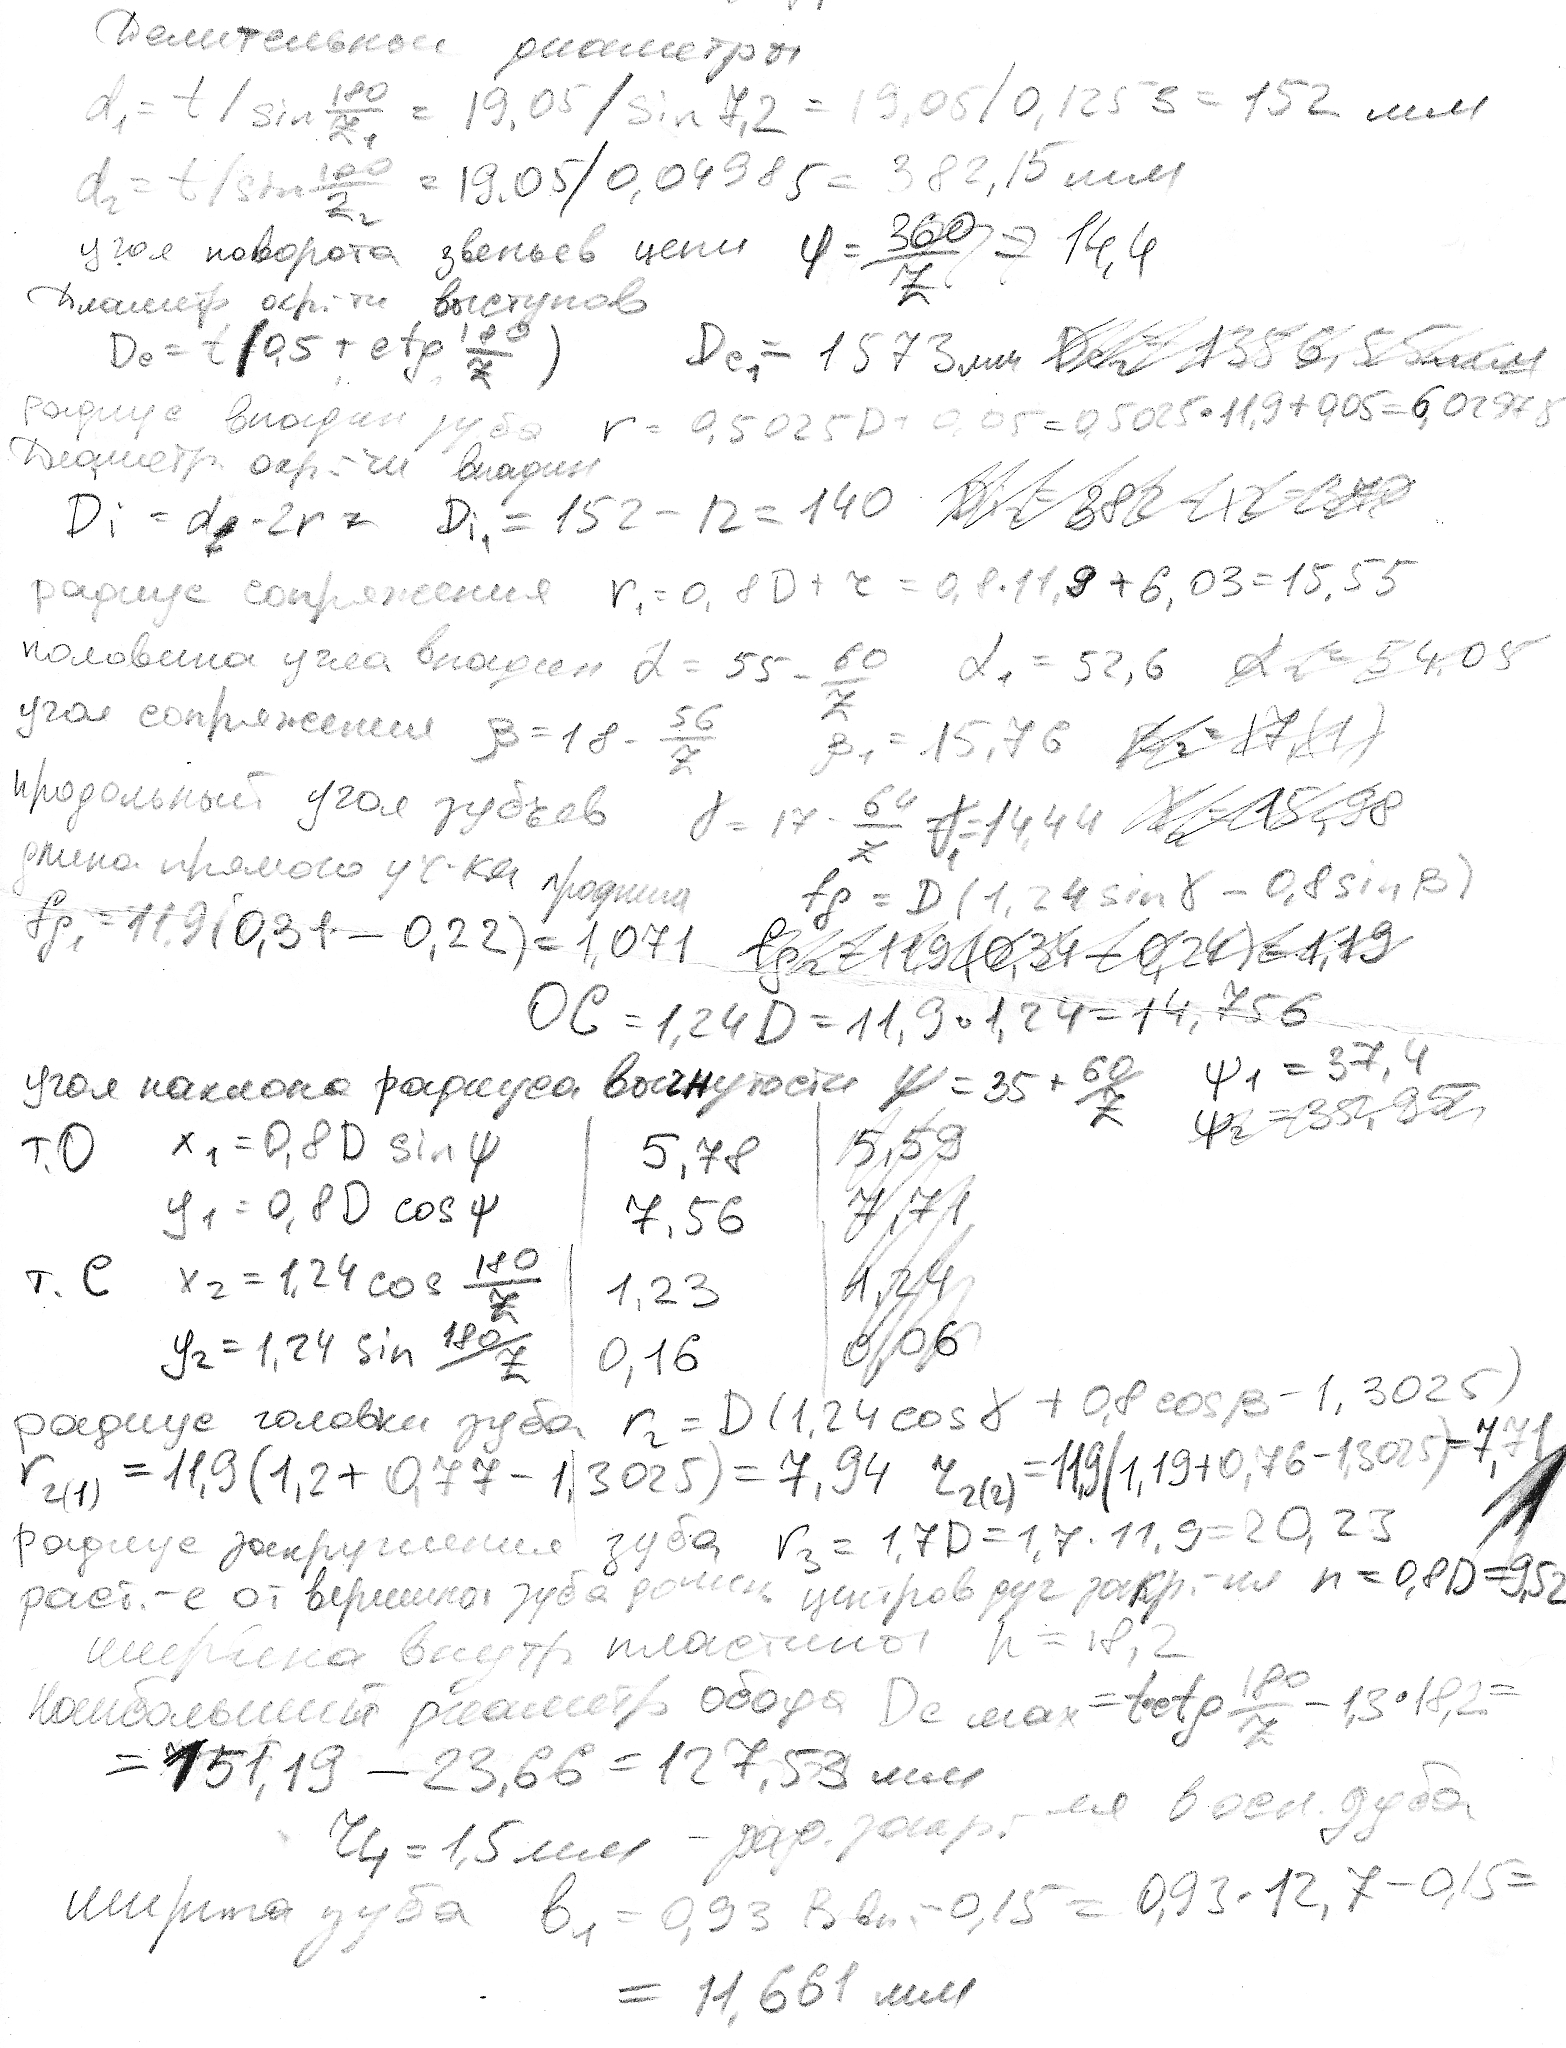 Делительные диаметры
d₁ = t / sin 180/z₁ = 19,05 / sin 7,2 = 19,05 / 0,1253 = 152 мм
d₂ = t / sin 180/z₂ = 19,05 / 0,04985 = 382,15 мм
угол поворота звеньев цепи φ = 360/z = 14,4
Диаметр окр-ти выступов
De = t (0,5 + ctg 180/z) De₁ = 1573 мм De₂ = 1356,55 мм
радиус впадин зуба r = 0,5025D + 0,05 = 0,5025·11,9 + 0,05 = 6,02975
Диаметр окр-ти впадин
Di = d₁ - 2r = Di₁ = 152 - 12 = 140 Di₂ = 382 - 12 = 370
радиус сопряжения r₁ = 0,8D + r = 0,8·11,9 + 6,03 = 15,55
половина угла впадин α = 55 - 60/z α₁ = 52,6 α₂ = 54,05
угол сопряжения β = 18 - 56/z β₁ = 15,76 β₂ = 17,11
продольный угол зубьев γ = 17 - 64/z γ₁ = 14,44 γ₂ = 15,98
длина прямого уч-ка профиля fg = D (1,24 sin γ - 0,8 sin β)
fg₁ = 11,9 (0,31 - 0,22) = 1,071 fg₂ = 11,9 (0,34 - 0,24) = 1,19
OC = 1,24D = 11,9 · 1,24 = 14,756
угол наклона радиуса вогнутости ψ = 35 + 60/z ψ₁ = 37,4
ψ₂ = 35,95
т.O x₁ = 0,8D sin ψ 5,78 5,59
y₁ = 0,8D cos ψ 7,56 7,71
т. C x₂ = 1,24 cos 180/z 1,23 1,24
y₂ = 1,24 sin 180/z 0,16 0,06
радиус головки зуба r₂ = D (1,24 cos γ + 0,8 cos β - 1,3025)
r₂₍₁₎ = 11,9 (1,2 + 0,77 - 1,3025) = 7,94 r₂₍₂₎ = 11,9 (1,19 + 0,76 - 1,3025) = 7,71
радиус закругления зуба r₃ = 1,7D = 1,7 · 11,9 = 20,23
раст.-е от вершины зуба до центров дуг закр.-ия h = 0,8D = 9,52
ширина внутр пластины h = 18,2
Наибольший диаметр обода Dc max = t·ctg 180/z - 1,3·18,2 =
= 151,19 - 23,66 = 127,53 мм
r₄ = 1,5 мм - рад. закр.-ия в осн. зуба
ширина зуба b₁ = 0,93 Bвн. - 0,15 = 0,93 · 12,7 - 0,15 =
= 11,661 мм